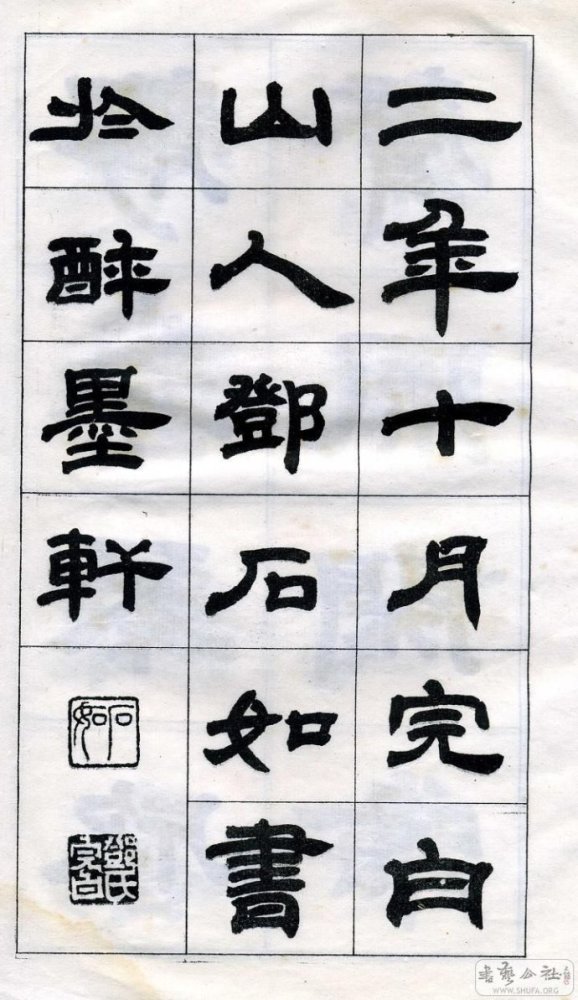 二年十月完白
山人鄧石如書
於醉墨軒
石如
鄧氏完白
書藝公社
WWW.SHUFA.ORG